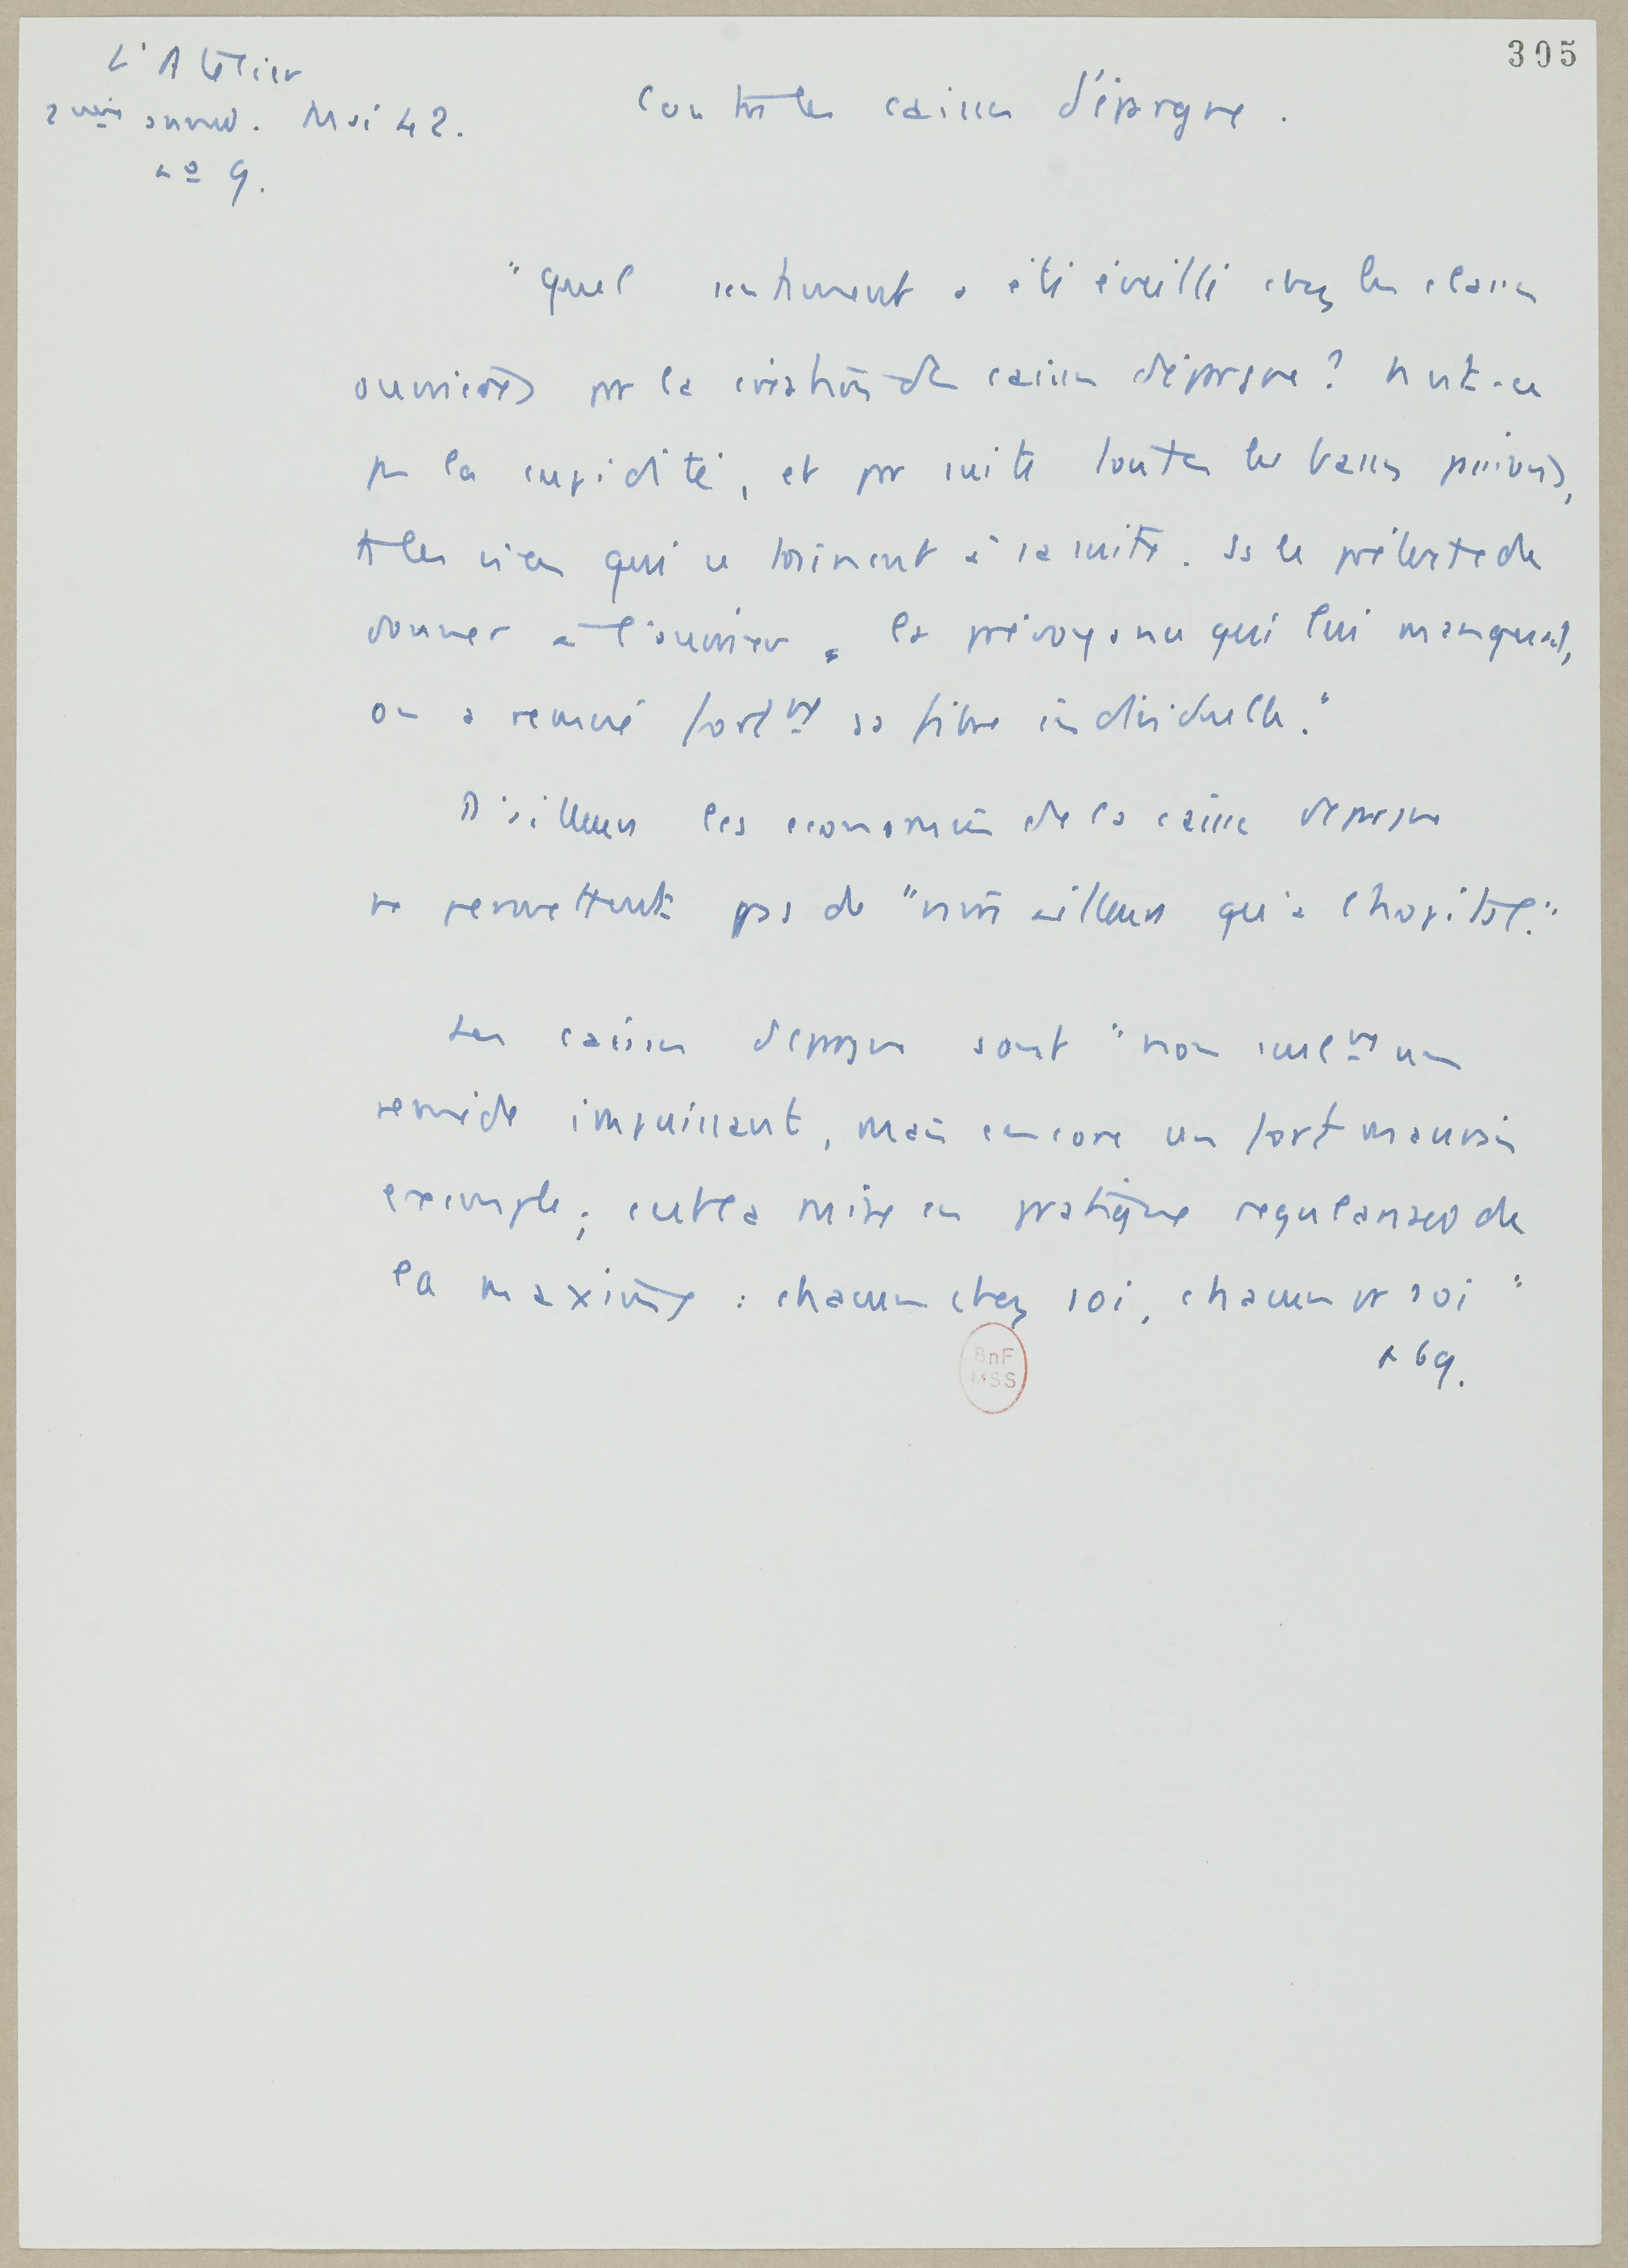 305
L'Atelier
2ème année. Mai 42.
no 9.
Contre les caisses d'épargne.
"Quel sentiment a été éveillé chez les classes
ouvrières par la création des caisses d'épargne? N'est-ce
pas la cupidité, et par suite toutes les basses passions,
et les vices qui se traînent à sa suite. Ss le prétexte de
donner à l'ouvrier la prévoyance qui lui manquait,
on a remué fortmt sa fibre individuelle."
D'ailleurs les économies de la caisse d'épargne
ne permettent pas de "mourir ailleurs qu'à l'hôpital."
Les caisses d'épargne sont "non seulmt un
remède impuissant, mais encore un fort mauvais
exemple; c'est la mise en pratique régularisée de
la maxime : chacun chez soi, chacun pr soi"
p 69.
BnF
MSS